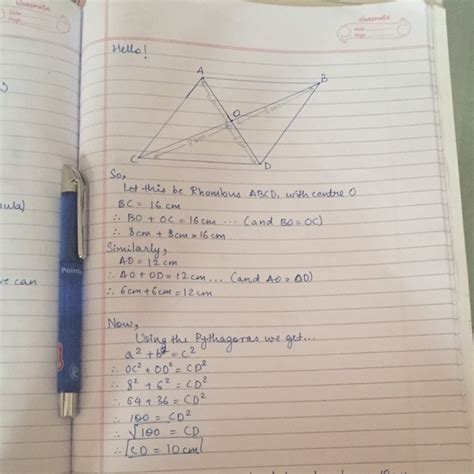 classmate
Date
Page
classmate
Date
Page
Hello!
A
B
O
8cm
C
D
So,
Let this be Rhombus ABCD, with centre O
BC = 16 cm
∴ BO + OC = 16cm ... (and BO = OC)
∴ 8cm + 8cm = 16cm
Similarly,
AD = 12cm
∴ AO + OD = 12cm ... (and AO = OD)
∴ 6cm + 6cm = 12cm
Now,
Using the Pythagoras we get...
a² + b² = c²
∴ OC² + OD² = CD²
∴ 8² + 6² = CD²
∴ 64 + 36 = CD²
∴ 100 = CD²
∴ √100 = CD
∴ CD = 10cm
ula)
re can
Points